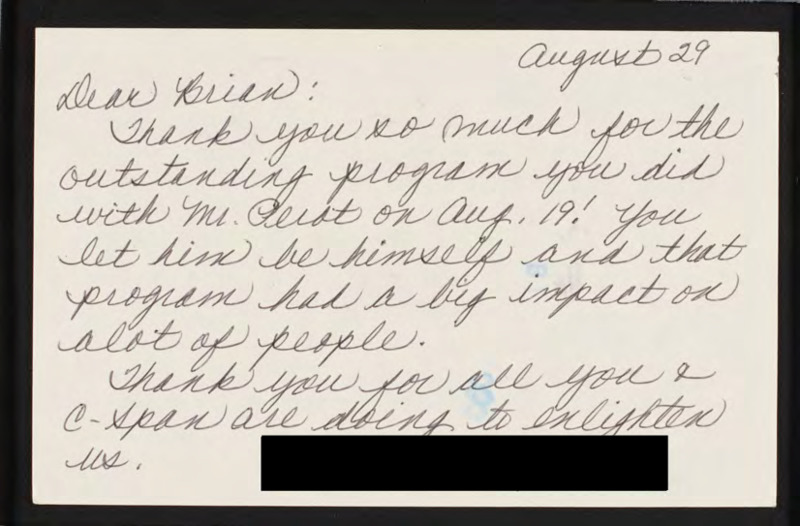 August 29
Dear Brian:
Thank you so much for the
outstanding program you did
with Mr. Perot on Aug. 19! You
let him be himself and that
program had a big impact on
alot of people.
Thank you for all you &
C-Span are doing to enlighten
us.